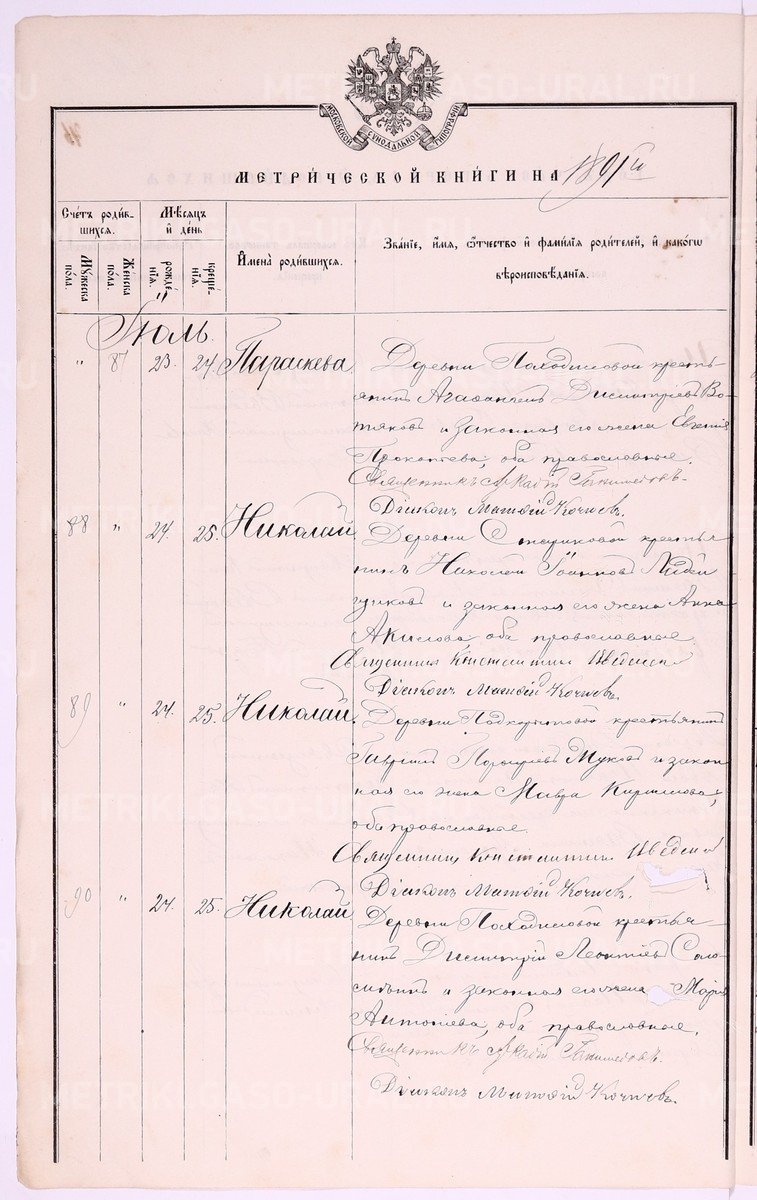 МОСКОВСКОЙ СУНОДАЛЬНОЙ ТИПОГРАФІИ
МЕТРИ́ЧЕСКОЙ КНИ́ГИ НА 1891 г.
Сче́тъ роди́вшихся.
Мѣ́сяцъ и҆ де́нь
И҆мена̀ роди́вшихся.
Зва́нїе, и҆́мя, ѻ҆́тчество и҆ фами́лїя роди́телей, и҆ како́гѡ
вѣроисповѣ́данїя.
Мꙋ́жеска по́ла.
Же́нска по́ла.
рожде́нїя.
креще́нїя.
Іюль.
" 87 23. 24. Параскева Деревни Походиловой кресть-
янинъ Агаѳангелъ Димитріевъ Во-
тяковъ и законная его жена Евгенія
Прокопіева, оба православные.
Священникъ Аркадій
Діаконъ Матѳій Кочневъ.
88 " 24. 25. Николай Деревни крестья-
нинъ Николай Іоанновъ
и законная его жена Анна
Акилова оба православные.
Священникъ Константинъ Введенскій
Діаконъ Матѳій Кочневъ.
89 " 24. 25. Николай Деревни Подкорытовой крестьянинъ
Гавріилъ Порфиріевъ и закон-
ная его жена Мавра Кириллова,
оба православные.
Священникъ Константинъ Введенскій
Діаконъ Матѳій Кочневъ.
90 " 24. 25. Николай Деревни Походиловой крестья-
нинъ Димитрій Леонтіевъ Соло-
и законная его жена Марія
Антоніева, оба православные.
Священникъ Аркадій
Діаконъ Матѳій Кочневъ.